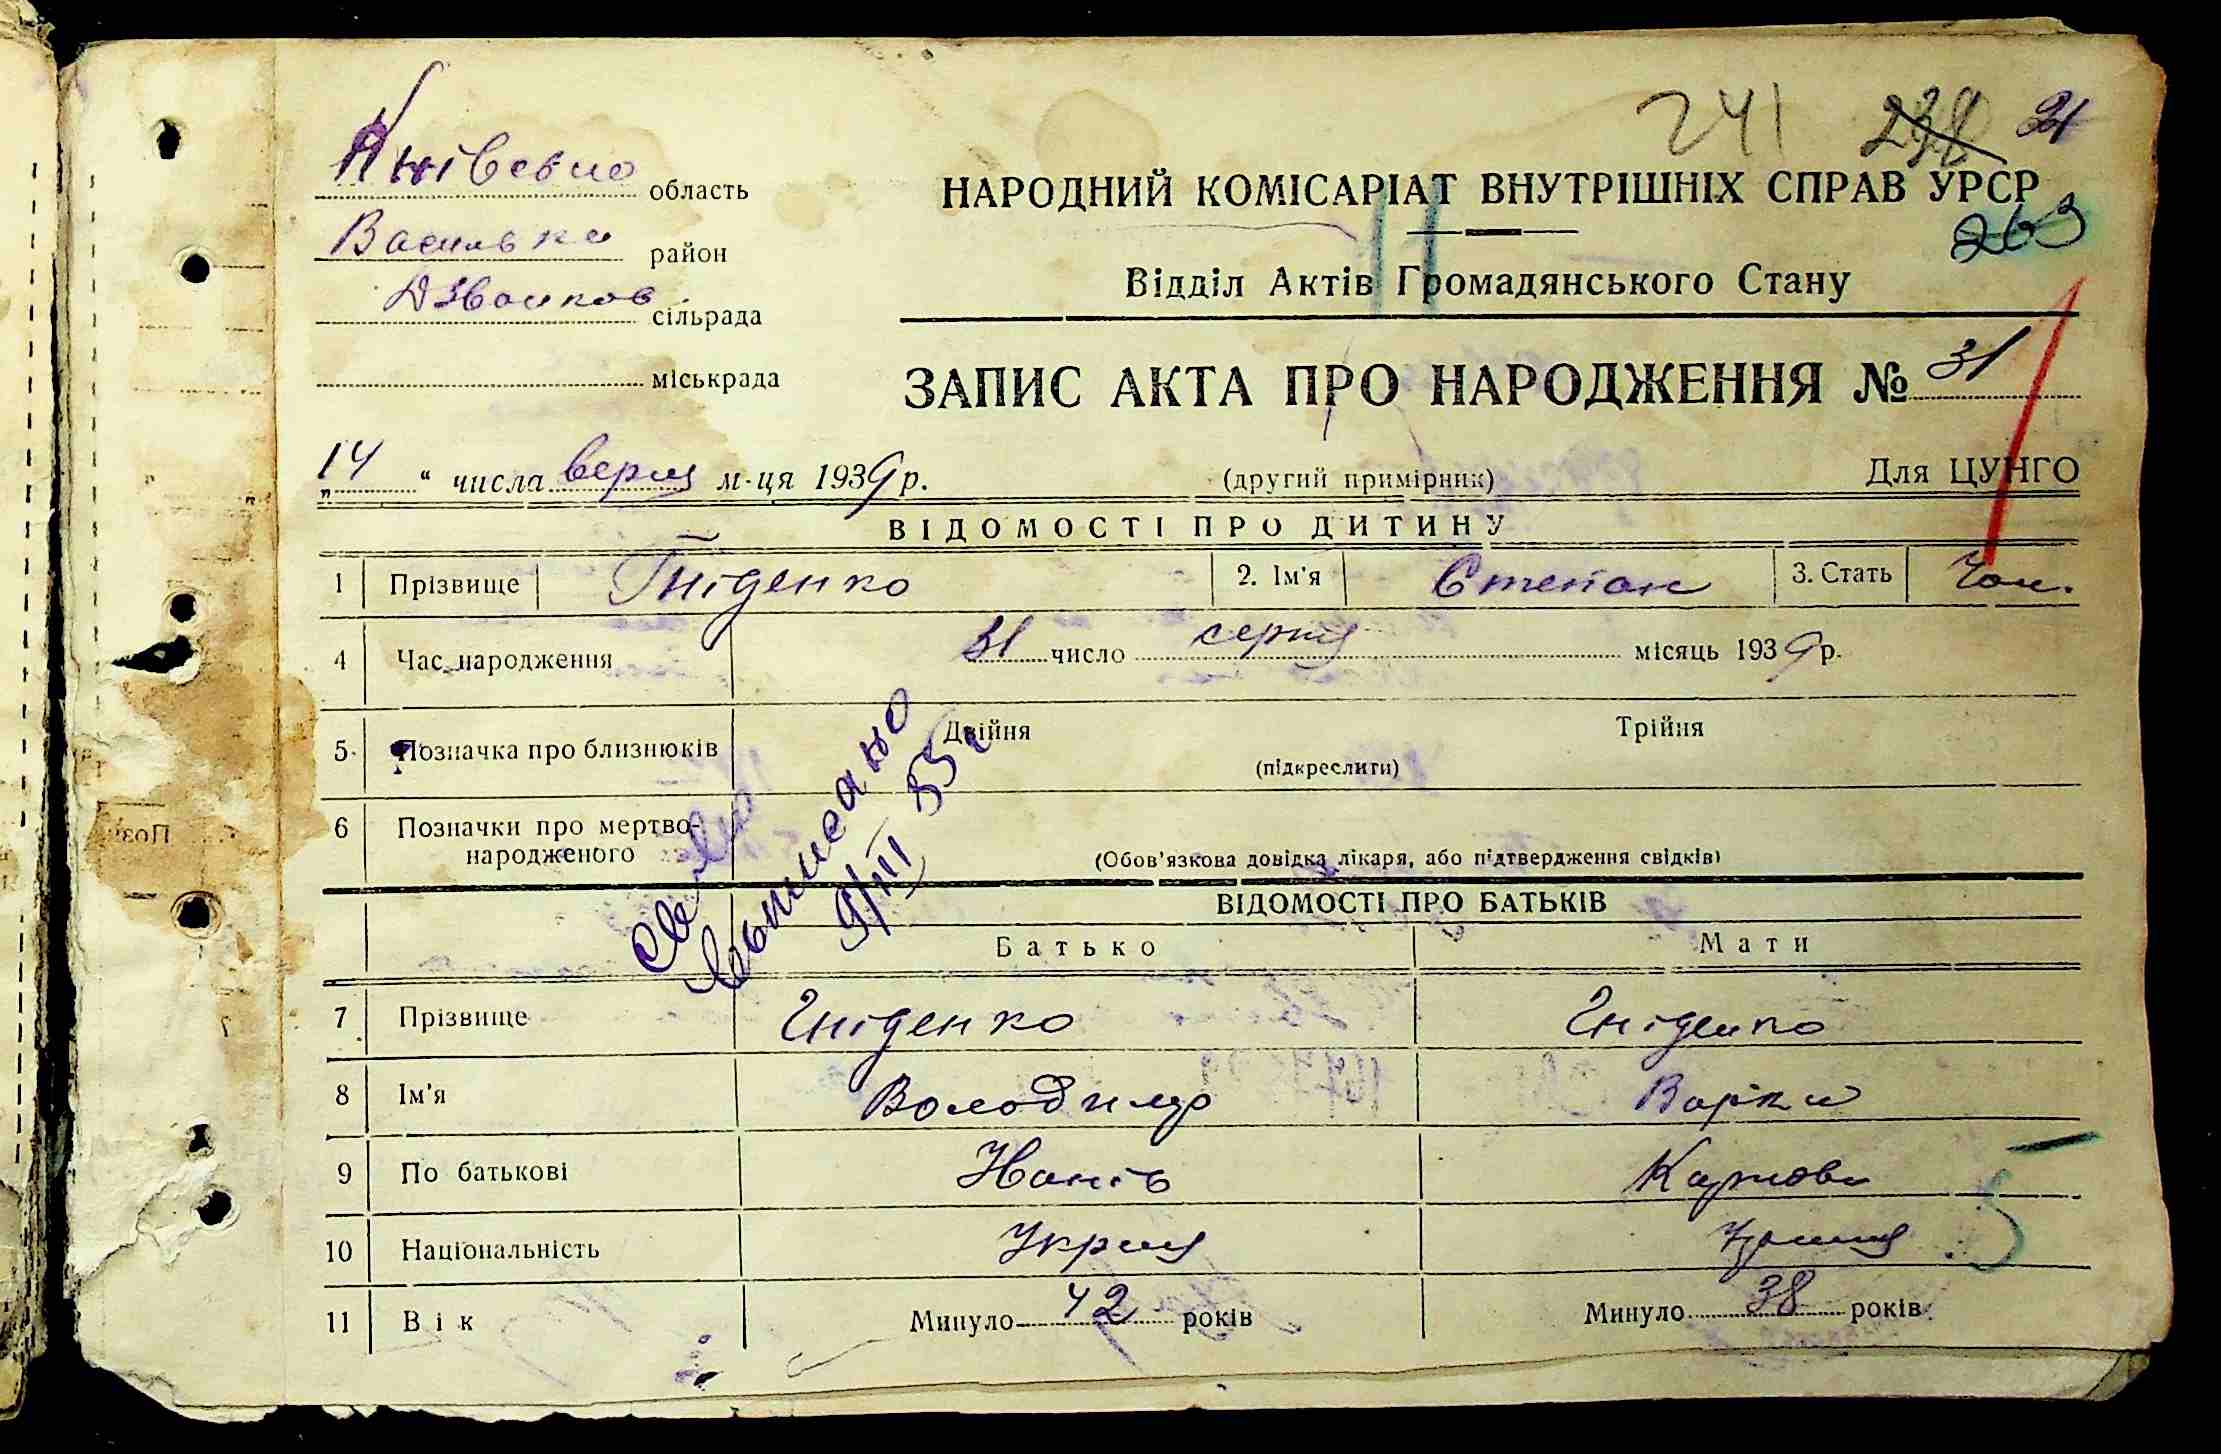 241 238 31
Київсько область
Васильки район
Дзвонков сільрада
міськрада
НАРОДНИЙ КОМІСАРІАТ ВНУТРІШНІХ СПРАВ УРСР
263
Відділ Актів Громадянського Стану
ЗАПИС АКТА ПРО НАРОДЖЕННЯ № 31
„14“ числа верця м-ця 1939 р. (другий примірник) Для ЦУНГО
ВІДОМОСТІ ПРО ДИТИНУ
1 Прізвище Гніденко 2. Ім'я Степан 3. Стать Чол.
4 Час народження 31 число серпя місяць 1939 р.
5 Позначка про близнюків Двійня Трійня
(підкреслити)
6 Позначки про мертво-
народженого (Обов'язкова довідка лікаря, або підтвердження свідків)
выписано
9/III 55 г
ВІДОМОСТІ ПРО БАТЬКІВ
Батько Мати
7 Прізвище Гніденко Гніденко
8 Ім'я Володимр Варка
9 По батькові Іванів Карпова
10 Національність Укрця
11 Вік Минуло 42 років Минуло 38 років
5